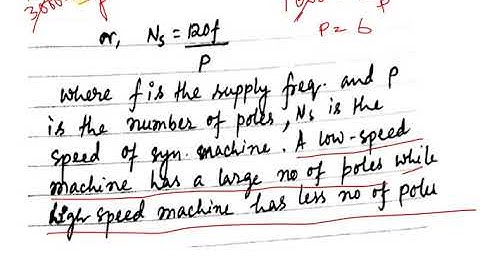 3000
P
P = 6
or, Ns = 120f
P
where f is the supply freq. and P
is the number of poles, Ns is the
speed of syn. machine. A low-speed
machine has a large no of poles while
high speed machine has less no of pole